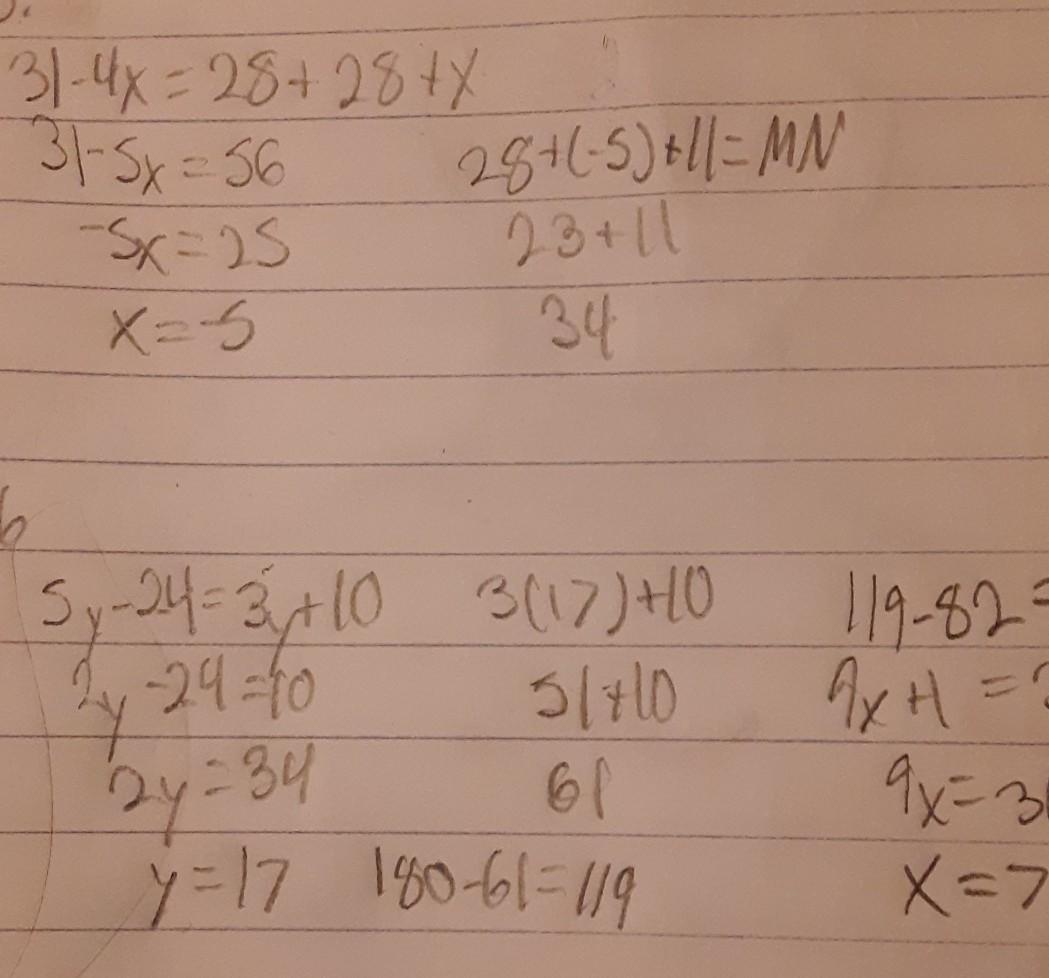 31-4x=28+28+x
31-5x=56 28+(-5)+11=MN
-5x=25 23+11
x=-5 34
6
5y-24=3y+10 3(17)+10 119-82=
2y-24=10 51+10 9x+1=
2y=34 61 9x=3
y=17 180-61=119 x=7